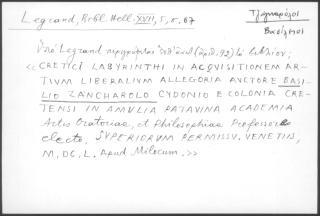 Legrand, Bibl. Hell. XVII, 5, σ. 67
Τζαγκαρόλος
Βασίλειος
Ὑπὸ Legrand περιγράφεται ὑπ' ἀριθ. 92) τὸ βιβλίον:
«CRETICI LABYRINTHI IN ACQUISITIONEM AR-
TIUM LIBERALIUM ALLEGORIA AUCTORE BASI-
LIO ZANCHAROLO CYDONIO E COLONIA CRE-
TENSI IN AMULIA PATAVINA ACADEMIA
Artis Oratoriae, et Philosophiae Professore
electo, SUPERIORUM PERMISSU. VENETIIS,
M.DC.L. Apud Milocum.»